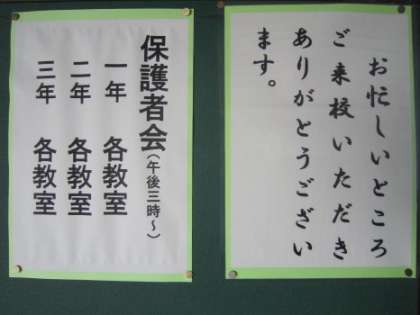 お忙しいところ
ご来校いただき
ありがとうござい
ます。
保護者会(午後三時〜)
一年 各教室
二年 各教室
三年 各教室